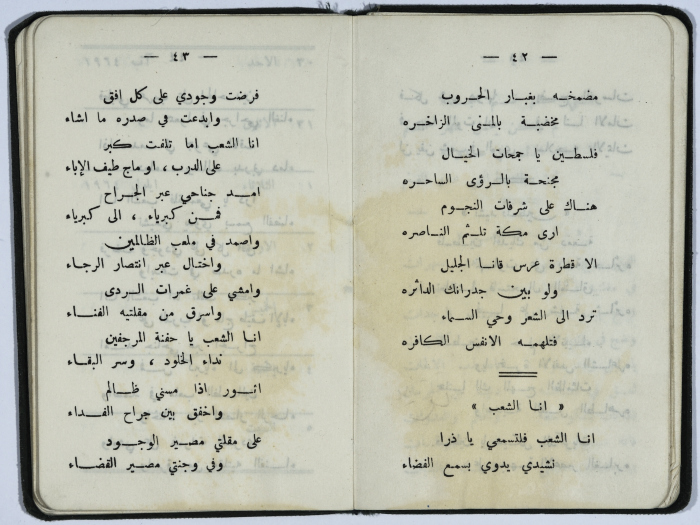 — ٤٢ —
مضمخه بغبار الحروب
مخضبة بالمنى الزاخره
فلسطين يا جمحات الخيال
مجنحة بالرؤى الساحره
هناك على شرفات النجوم
ارى مكة تلثم الناصره
الا قطرة عرس قانا الجليل
ولو بين جدرانك الداثره
ترد الى الشعر وحي السماء
فتلهمه الانفس الكافره
« انا الشعب »
انا الشعب فلتسمعي يا ذرا
نشيدي يدوي بسمع الفضاء
— ٤٣ —
فرضت وجودي على كل افق
وابدعت في صدره ما اشاء
انا الشعب اما تلفت كبر
على الدرب ، او ماج طيف الإباء
امد جناحي عبر الجراح
فمن كبرياء ، الى كبرياء
واصمد في ملعب الظالمين
واختال عبر انتصار الرجاء
وامشي على غمرات الردى
واسرق من مقلتيه الفناء
انا الشعب يا حفنة المرجفين
نداء الخلود ، وسر البقاء
اثور اذا مسني ظالم
واخفق بين جراح الفداء
على مقلتي مصير الوجود
وفي وجنتي مصير القضاء